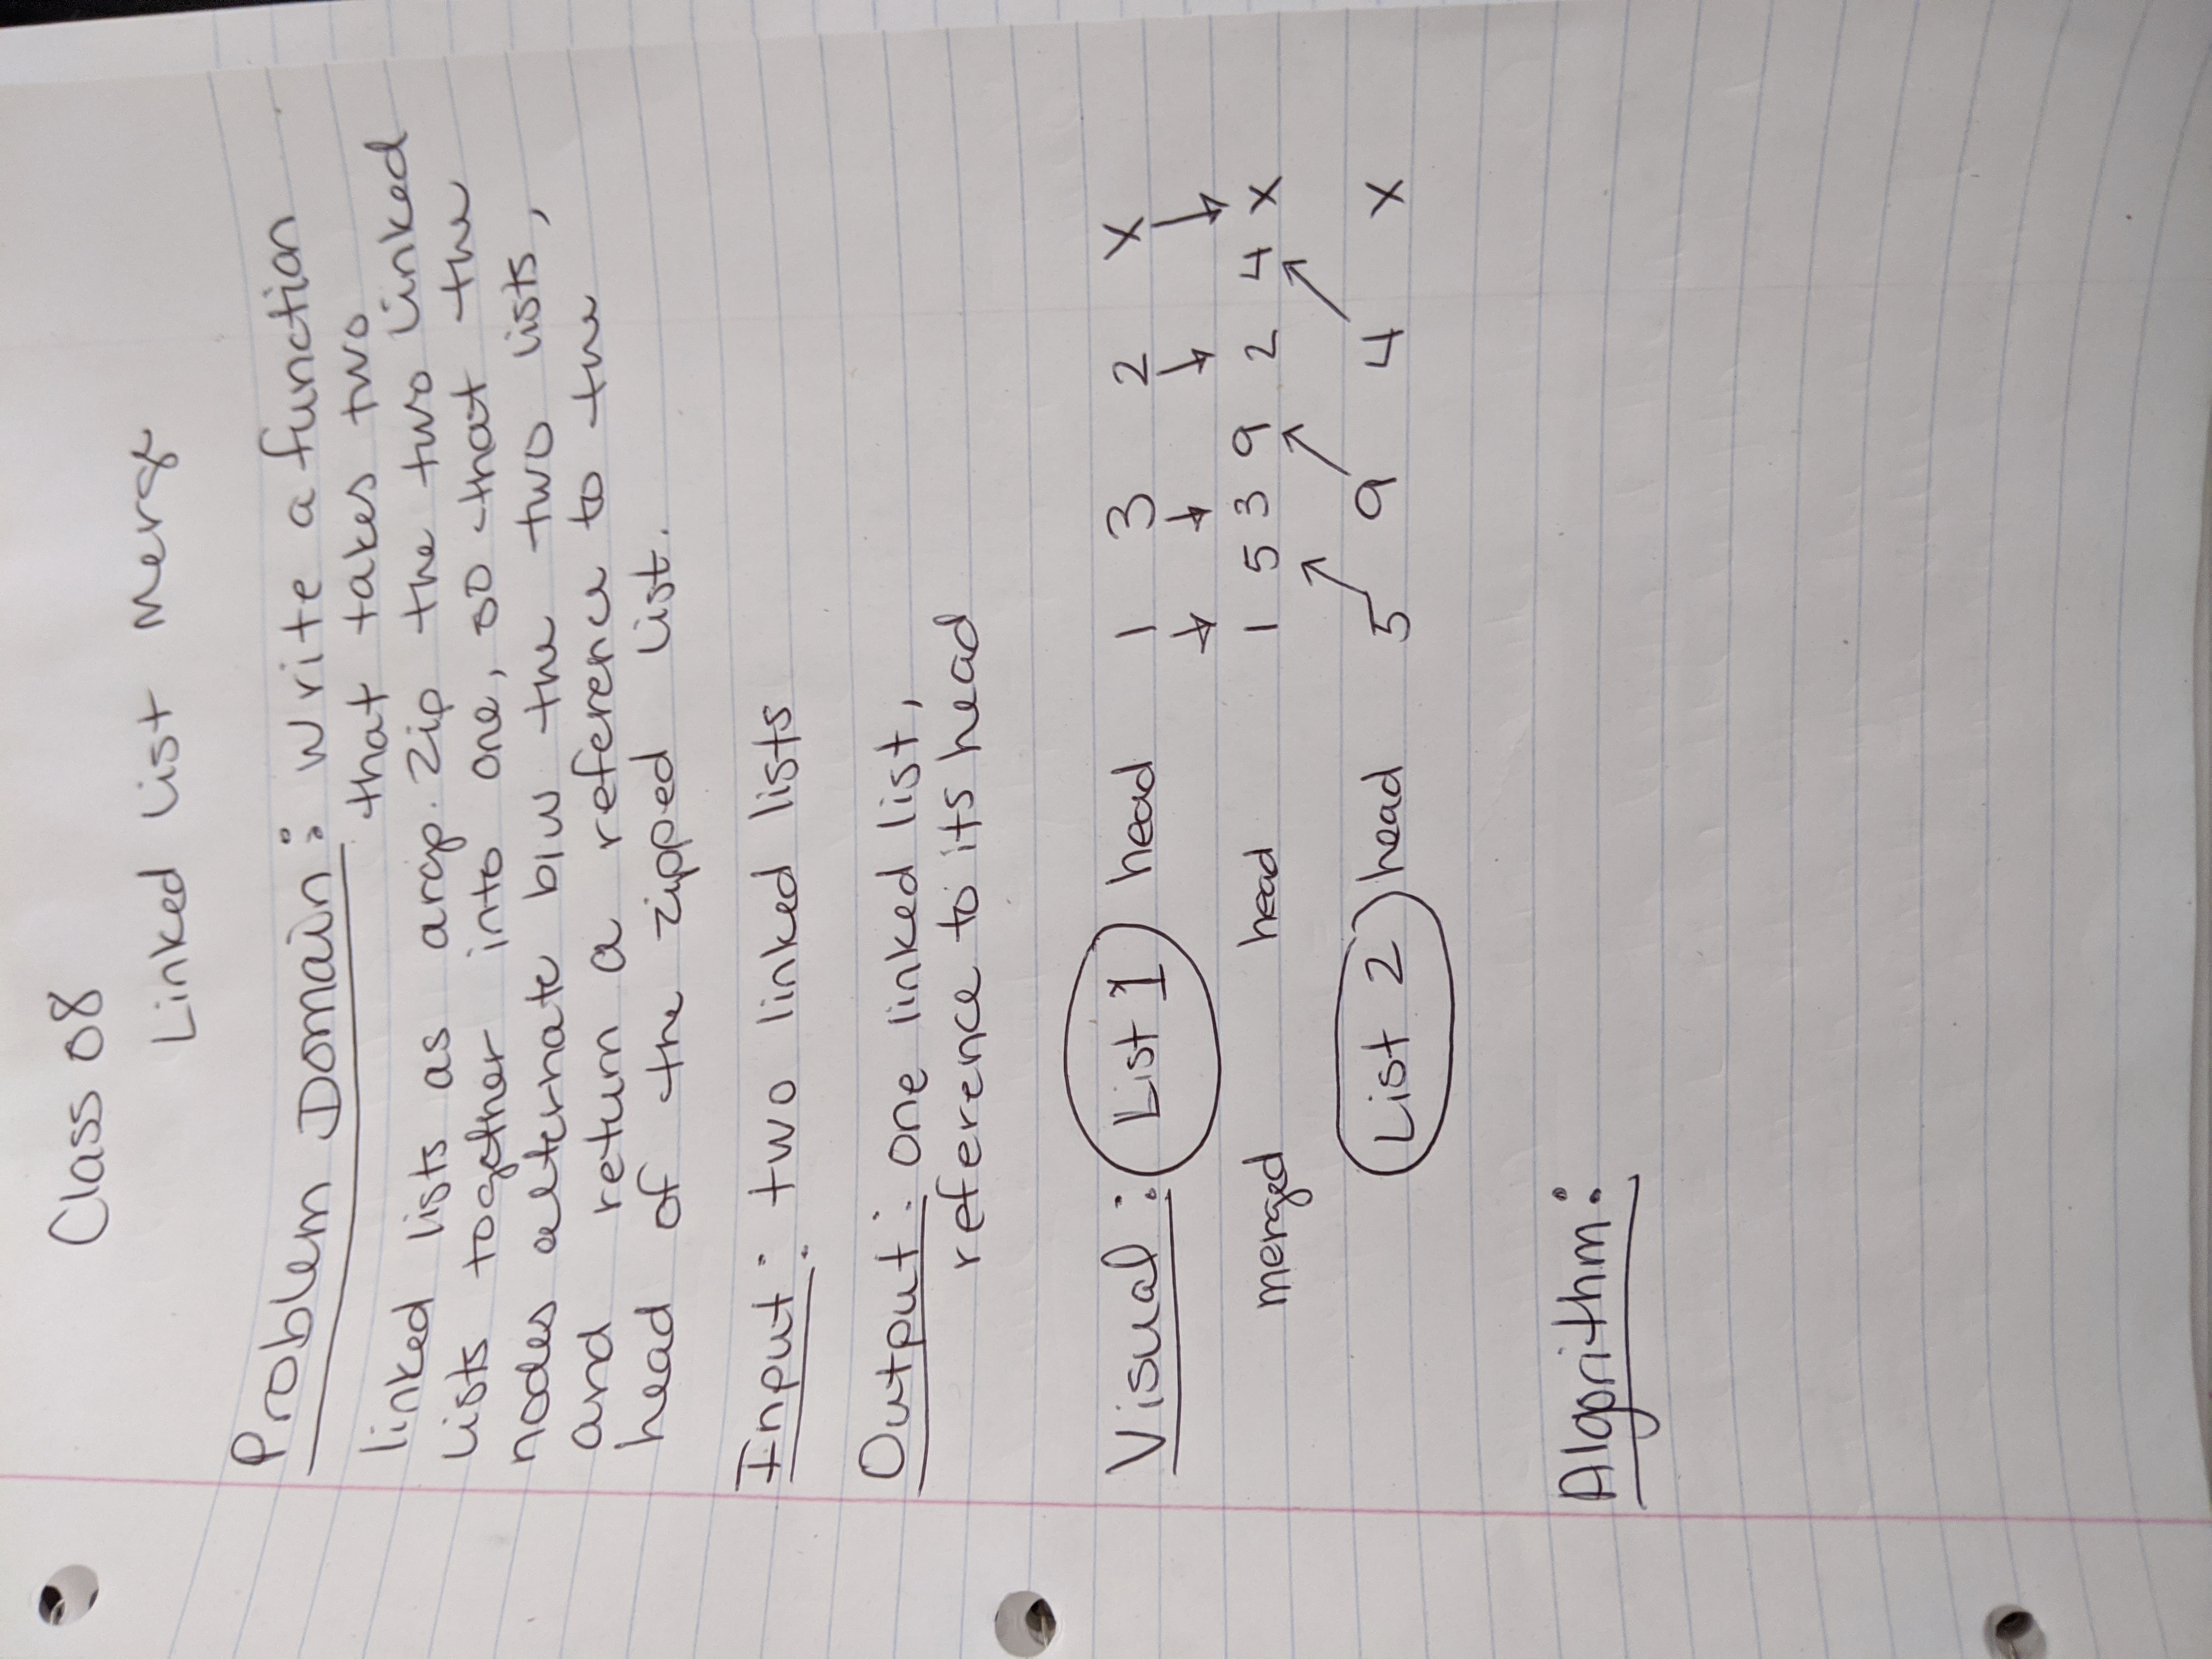 Class 08
Linked List Merge
Problem Domain: Write a function
that takes two
linked lists as args. Zip the two linked
lists together into one, so that the
nodes alternate b/w the two lists,
and return a reference to the
head of the zipped list.
Input: two linked lists
Output: one linked list,
reference to its head
Visual: List 1 head 1 3 2 X
merged head 1 5 3 9 2 4 X
List 2 head 5 9 4 X
Algorithm: